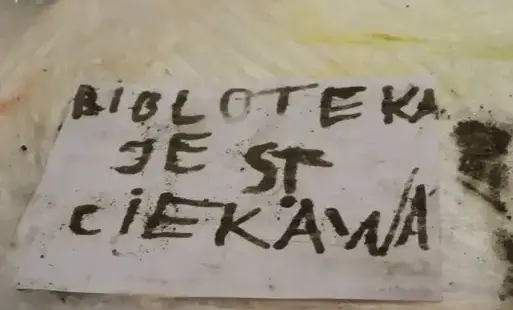 BIBLOTEKA
JEST
CIEKAWA